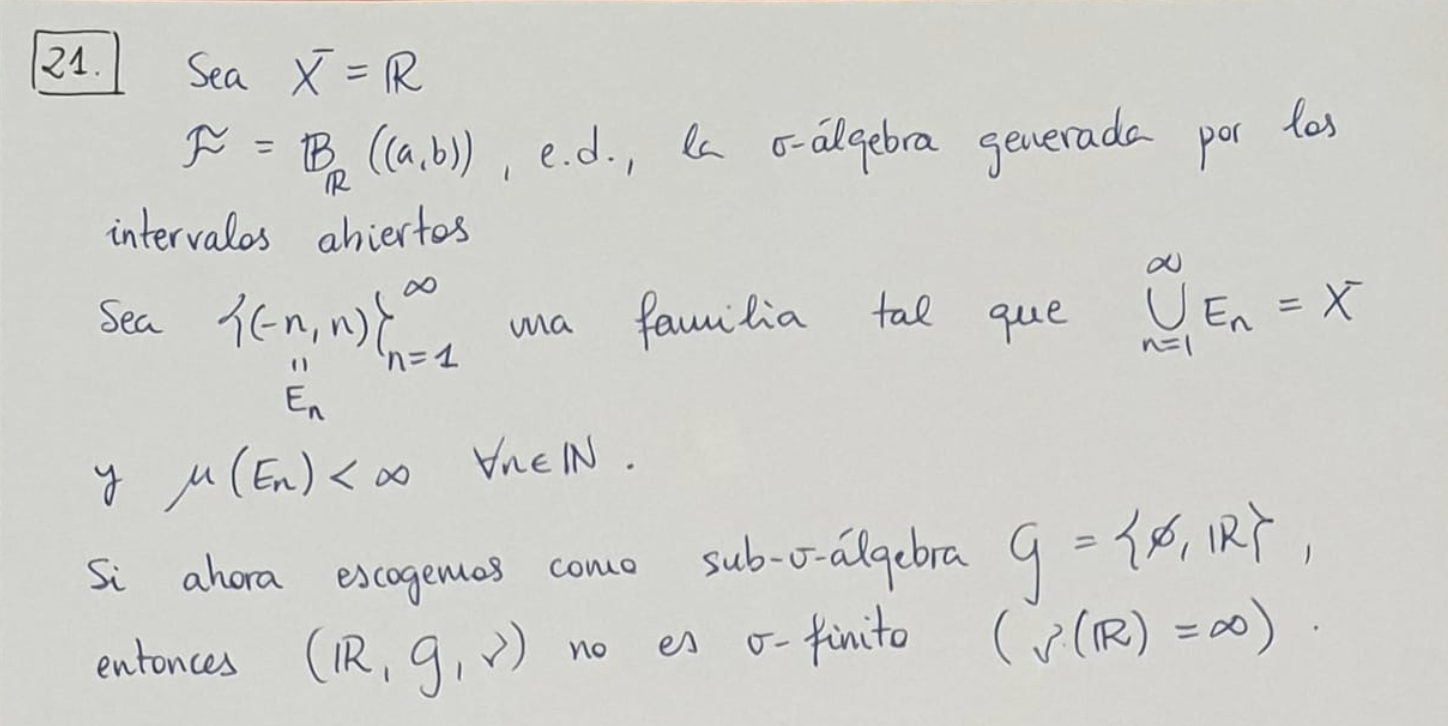 21. Sea X̄ = ℝ
F = 𝔹_ℝ ((a,b)), e.d., la σ-álgebra generada por los
intervalos abiertos
Sea {(-n,n)}_{n=1}^∞ una familia tal que ⋃_{n=1}^∞ E_n = X̄
"
E_n
y μ(E_n) < ∞ ∀n∈ℕ.
Si ahora escogemos como sub-σ-álgebra G = {∅, ℝ},
entonces (ℝ, G, ν) no es σ-finito (ν(ℝ) = ∞).